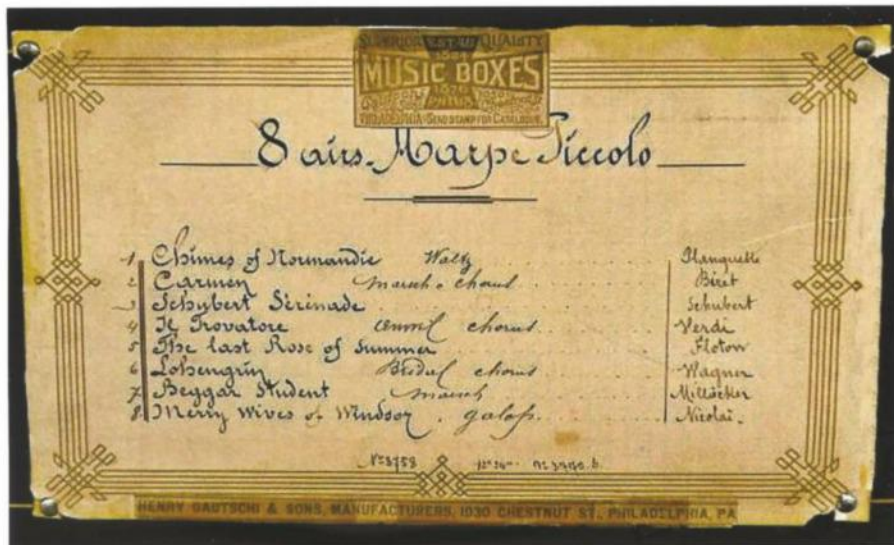 SUPERIOR ESTAB QUALITY
MUSIC BOXES
PHILADELPHIA. SEND STAMP FOR CATALOGUE.
8 airs. Harpe Piccolo
1 Chimes of Normandie Waltz Planquette
2 Carmen march & chorus Bizet
3 Schubert Sérénade Schubert
4 Il Trovatore anvil chorus Verdi
5 The last Rose of Summer Flotow
6 Lohengrin Bridal chorus Wagner
7 Beggar Student march Millöcker
8 Merry Wives of Windsor. galop. Nicolaï.
Nº 3758
HENRY GAUTSCHI & SONS, MANUFACTURERS, 1030 CHESTNUT ST., PHILADELPHIA, PA